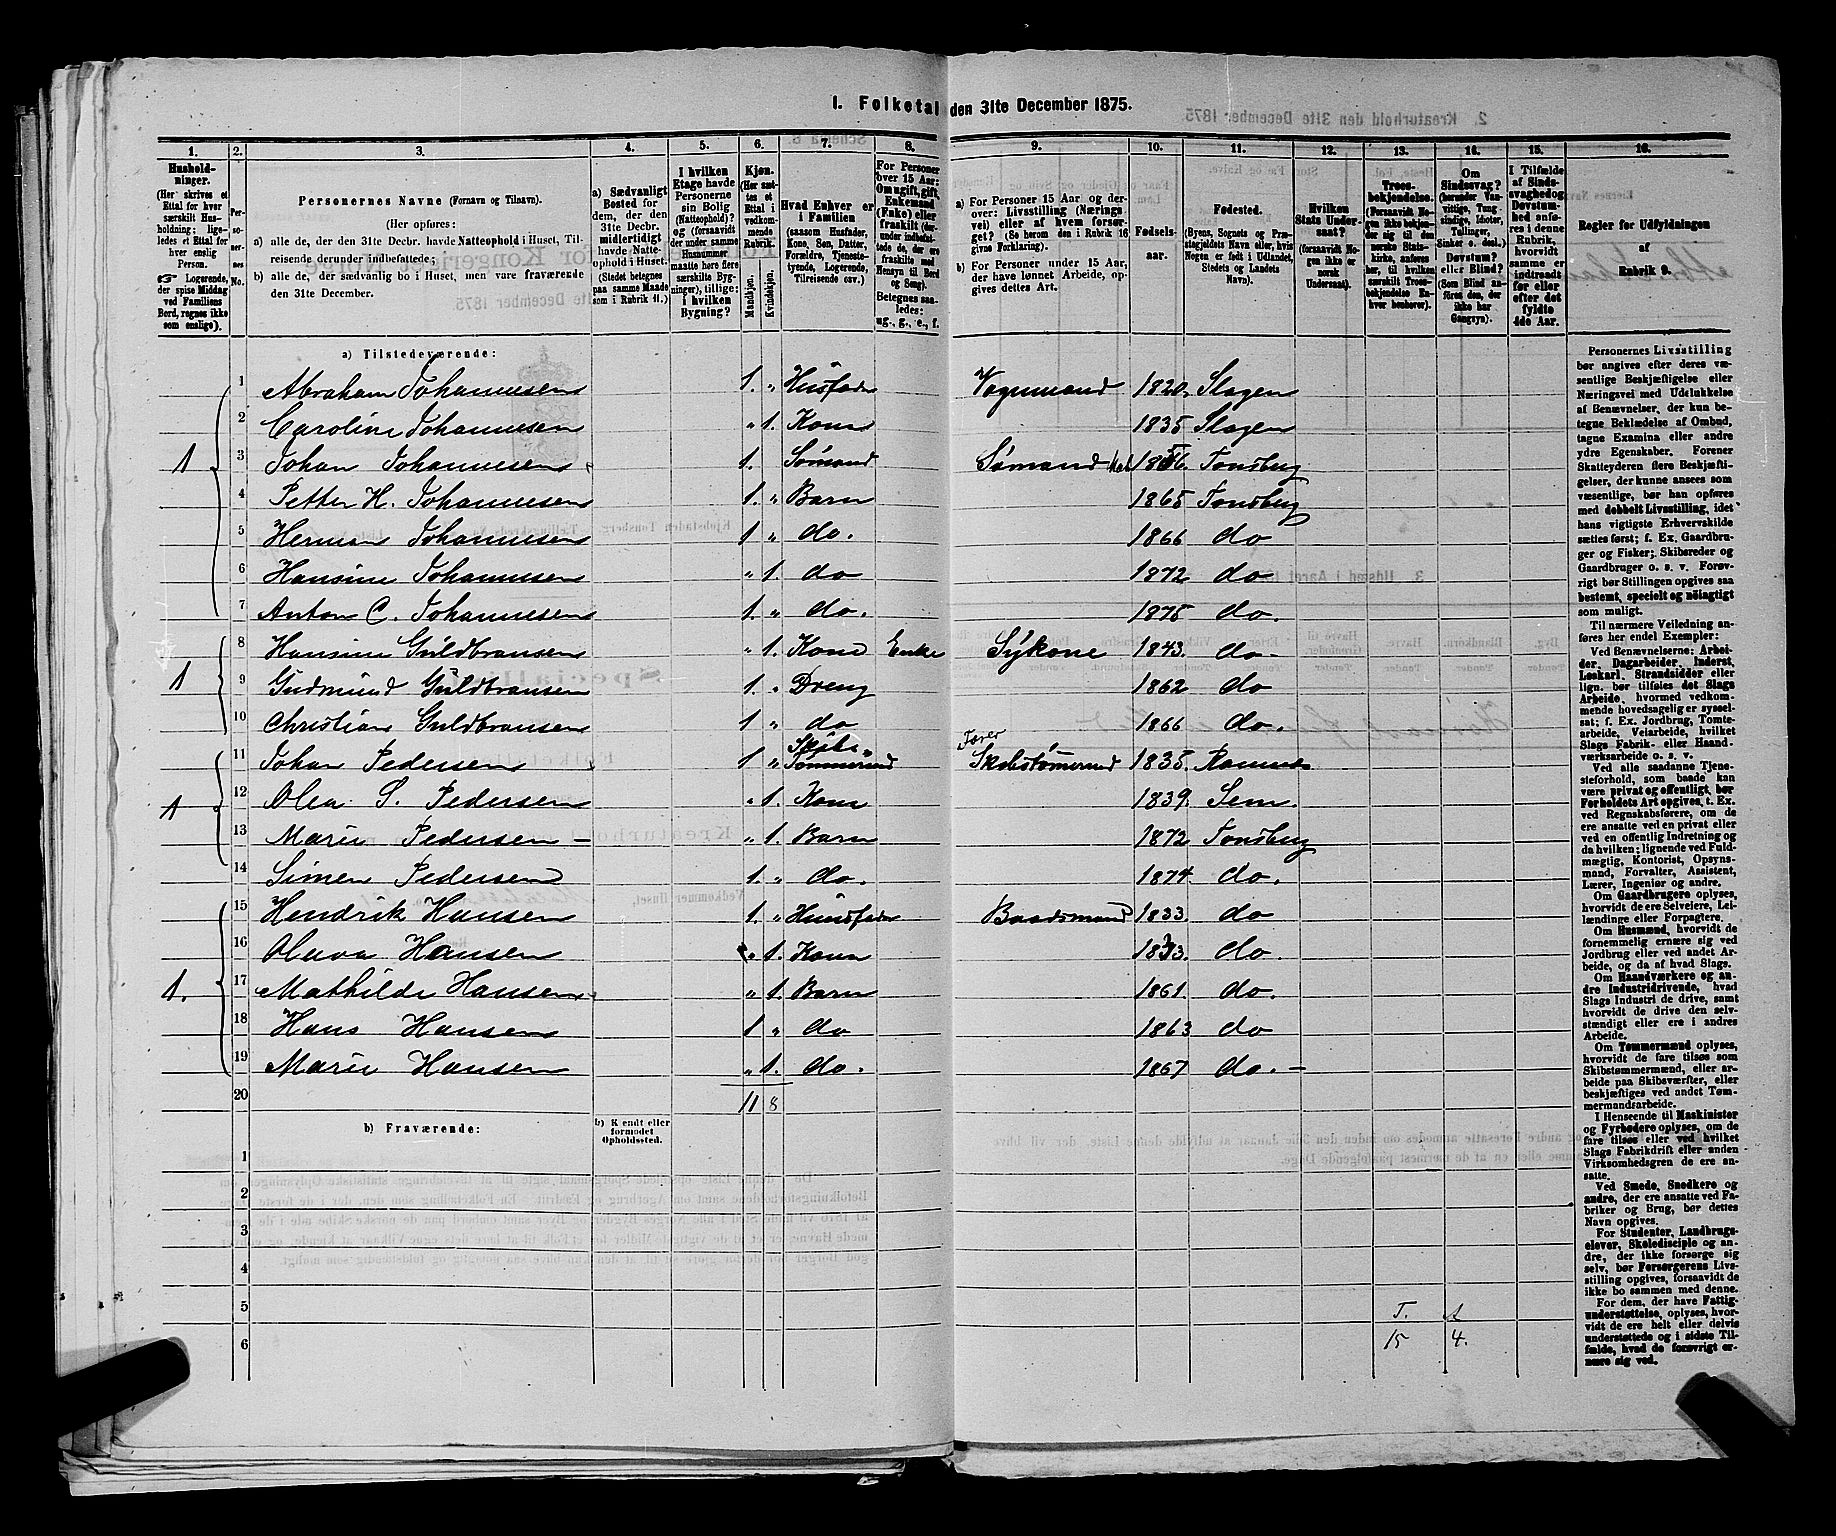 I. Folketal den 31te December 1875.
1. 2. 3. 4. 5. 6. 7. 8. 9. 10. 11. 12. 13. 14. 15. 16.
Husholdninger.
(Her skrives et Ettal for hver særskilt Husholdning; ligeledes et Ettal for hver enslig Person.
☞ Logerende, der spise Middag ved Familiens Bord, regnes ikke som enslige).
Personernes No.
Personernes Navne (Fornavn og Tilnavn).
(Her opføres:
a) alle de, der den 31te Decbr. havde Natteophold i Huset, Tilreisende derunder indbefattede;
b) alle de, der bo i Huset, men vare fraværende den 31te December.
a) Sædvanligt Bosted for dem, der den 31te Decbr. midlertidigt havde Natteophold i Huset. (Stedet betegnes paa samme Maade som i Rubrik 11.)
I hvilken Etage havde Personerne sin Bolig (Natteophold)? og (forsaavidt der under samme Husnummer maatte høre flere særskilte Bygninger), tillige: i hvilken Bygning?
Kjøn. (Her sættes et Ettal i vedkommende Rubrik.
Mandkjøn. Kvindekjøn.
Hvad Enhver er i Familien (saasom Husfader, Kone, Søn, Datter, Forældre, Tjenestetyende, Logerende, Tilreisende osv.)
For Personer over 15 Aar: Om ugift, gift, Enkemand (Enke) eller fraskilt (derunder indbefattede de, der ere fraskilte med Hensyn til Bord og Seng). Betegnes saaledes: ug., g., e., f.
a) For Personer 15 Aar og derover: Livsstilling (Næringsvei) eller af hvem forsørget? (Se herom den i Rubrik 16 givne Forklaring).
b) For Personer under 15 Aar, der have lønnet Arbeide, opgives dettes Art.
Fødselsaar.
Fødested. (Byens, Sognets og Præstegjeldets Navn eller, hvis Nogen er født i Udlandet, Stedets og Landets Navn).
Hvilken Stats Undersaat? (forsaavidt Nogen ikke er norsk Undersaat).
Troesbekjendelse. (Forsaavidt Nogen ikke bekjender sig til den norske Statskirke, anføres her, til hvilken særskilt Troesbekjendelse Enhver henhører).
Om Sindssvag? (herunder Vanvittige, Tungsindige, Idioter, Tullinger, Sinker o. desl.) Døvstum? eller Blind? (Som Blind anføres den, der ikke har Gangsyn).
I Tilfælde af Sindssvaghed og Døvstumhed anføres i denne Rubrik, hvorvidt samme er indtraadt før eller efter det fyldte 4de Aar.
Regler for Udfyldningen af Rubrik 9.
a) Tilstedeværende:
1 1 Abraham Johannesen 1. „ Husfader Vognmand 1820. Slagen
2 Caroline Johannesen „ 1. Kone 1835 Slagen
3 Johan Johannesen 1. Sømand Sømand 1856. Tonsberg
4 Petter H. Johannesen 1. „ Barn 1865 Tonsberg
5 Herman Johannesen 1 „ do. 1866 do
6 Hansine Johannesen „ 1. do 1872 do
7 Anton C. Johannesen 1. „ do. 1875 do.
1 8 Hansine Guldbransen „ 1. Kone Enke Sykone 1843. do-
9 Gudmund Guldbransen 1. „ Dreng 1862 do
10 Christian Guldbransen 1 „ do 1866 do.
1 11 Johan Pedersen 1 „ Skibstømmermand Skibstømermand 1835. Ramnes
12 Olea S. Pedersen „ 1. Kone 1839. Sem.
13 Marie Pedersen - „ 1. Barn 1872 Tonsberg
14 Simen Pedersen 1. „ do. 1874 do.
1. 15 Hendrik Hansen 1. „ Huusfader Baadsmand 1833. do
16 Oleva Hansen „ 1. Kone 1833. do.
17 Mathilde Hansen „ 1. Barn 1861. do.
18 Hans Hansen 1 „ do 1863 do
19 Marie Hansen „ 1. do. 1867 do. -
20
11 8
b) Fraværende:
b) Kjendt eller formodet Opholdssted.
1
2
3
4
5 T. A
6 15 4.
Personernes Livsstilling
bør angives efter deres væ-
sentlige Beskjæftigelse eller
Næringsvei med Udelukkelse
af Benævnelser, der kun be-
tegne Beklædelse af Ombud,
tagne Examina eller andre
ydre Egenskaber. Forener
Skatteyderen flere Beskjæfti-
gelser, der kunne ansees som
væsentlige, bør han opføres
med dobbelt Livsstilling, idet
hans vigtigste Erhvervskilde
sættes først; f. Ex. Gaardbru-
ger og Fisker; Skibsreder og
Gaardbruger o. s. v. Forøv-
rigt bør Stillingen opgives saa
bestemt, specielt og nøiagtigt
som muligt.
Til nærmere Veiledning an-
føres her endel Exempler:
Ved Benævnelserne: Arbei-
der, Dagarbeider, Inderst,
Løskarl, Strandsidder eller
lign. bør tilføies det Slags
Arbeide, hvormed vedkom-
mende hovedsagelig er syssel-
sat; f. Ex. Jordbrug, Tomte-
arbeide, Veiarbeide, hvilket
Slags Fabrik- eller Haand-
værksarbeide o. s. v.
Ved alle saadanne Tjene-
steforhold, som baade kan
være privat og offentligt, bør
Forholdets Art opgives, t. Ex.
ved Regnskabsførere, om de
ere ansatte ved en privat eller
ved en offentlig Indretning og
da hvilken; lignende ved Fuld-
mægtig, Kontorist, Opsyns-
mand, Forvalter, Assistent,
Lærer, Ingeniør og andre.
Om Gaardbrugere oplyses,
hvorvidt de ere Selveiere, Lei-
lændinge eller Forpagtere.
Om Husmænd, hvorvidt de
fornemmelig ernære sig ved
Jordbrug eller ved andet Ar-
beide, og da af hvad Slags.
Om Haandværkere og an-
dre Industridrivende, hvad
Slags Industri de drive, samt
hvorvidt de drive den selv-
stændigt eller ere i andres
Arbeide.
Om Tømmermænd oplyses,
hvorvidt de fare tilsøs som
Skibstømmermænd, eller ar-
beide paa Skibsværfter, eller
beskjæftiges ved andet Tøm-
mermandsarbeide.
I Henseende til Maskinister
og Fyrbødere oplyses, om de
fare tilsøs eller ved hvilket
Slags Fabrikdrift eller anden
Virksomhedsgren de ere an-
satte.
Ved Smede, Snedkere og
andre, der ere ansatte ved Fa-
briker og Brug, bør dettes
Navn opgives.
For Studenter, Landbrugs-
elever, Skoledisciple og an-
dre, der ikke forsørge sig
selv, bør Forsørgerens Livs-
stilling opgives, forsaavidt de
ikke bo sammen med denne.
For dem, der have Fattig-
understøttelse, oplyses, hvor-
vidt de ere helt eller delvis
understøttede og i sidste Til-
fælde, hvad de forøvrigt er-
nære sig ved.